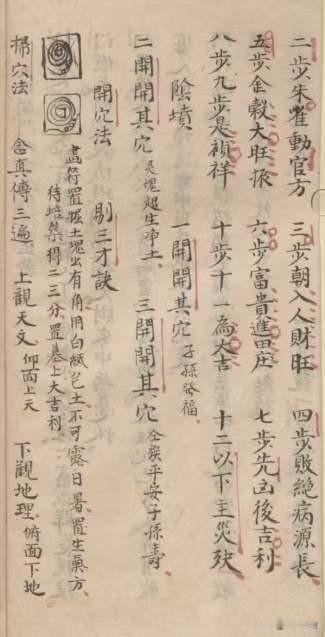 二步朱雀動官方　三步朝入人財旺　四步敗絕病源長
五步金穀大旺振　六步富貴進田庄　七步先凶後吉利
八步九步是禎祥　十步十一為大吉　十二以下主災殃
陰墳　一開開其穴 子孫發福
二開開其穴 灵魂超生净土　三開開其穴 仝發平安子孫壽
開穴法　剔三才訣
畵符置塚土塊出有角用白紙包土不可露日暑置生氣方
待培禁得二三分置基上大吉利
掃穴法　念真傳三遍　上觀天文 仰面上天　下觀地理 俯面下地